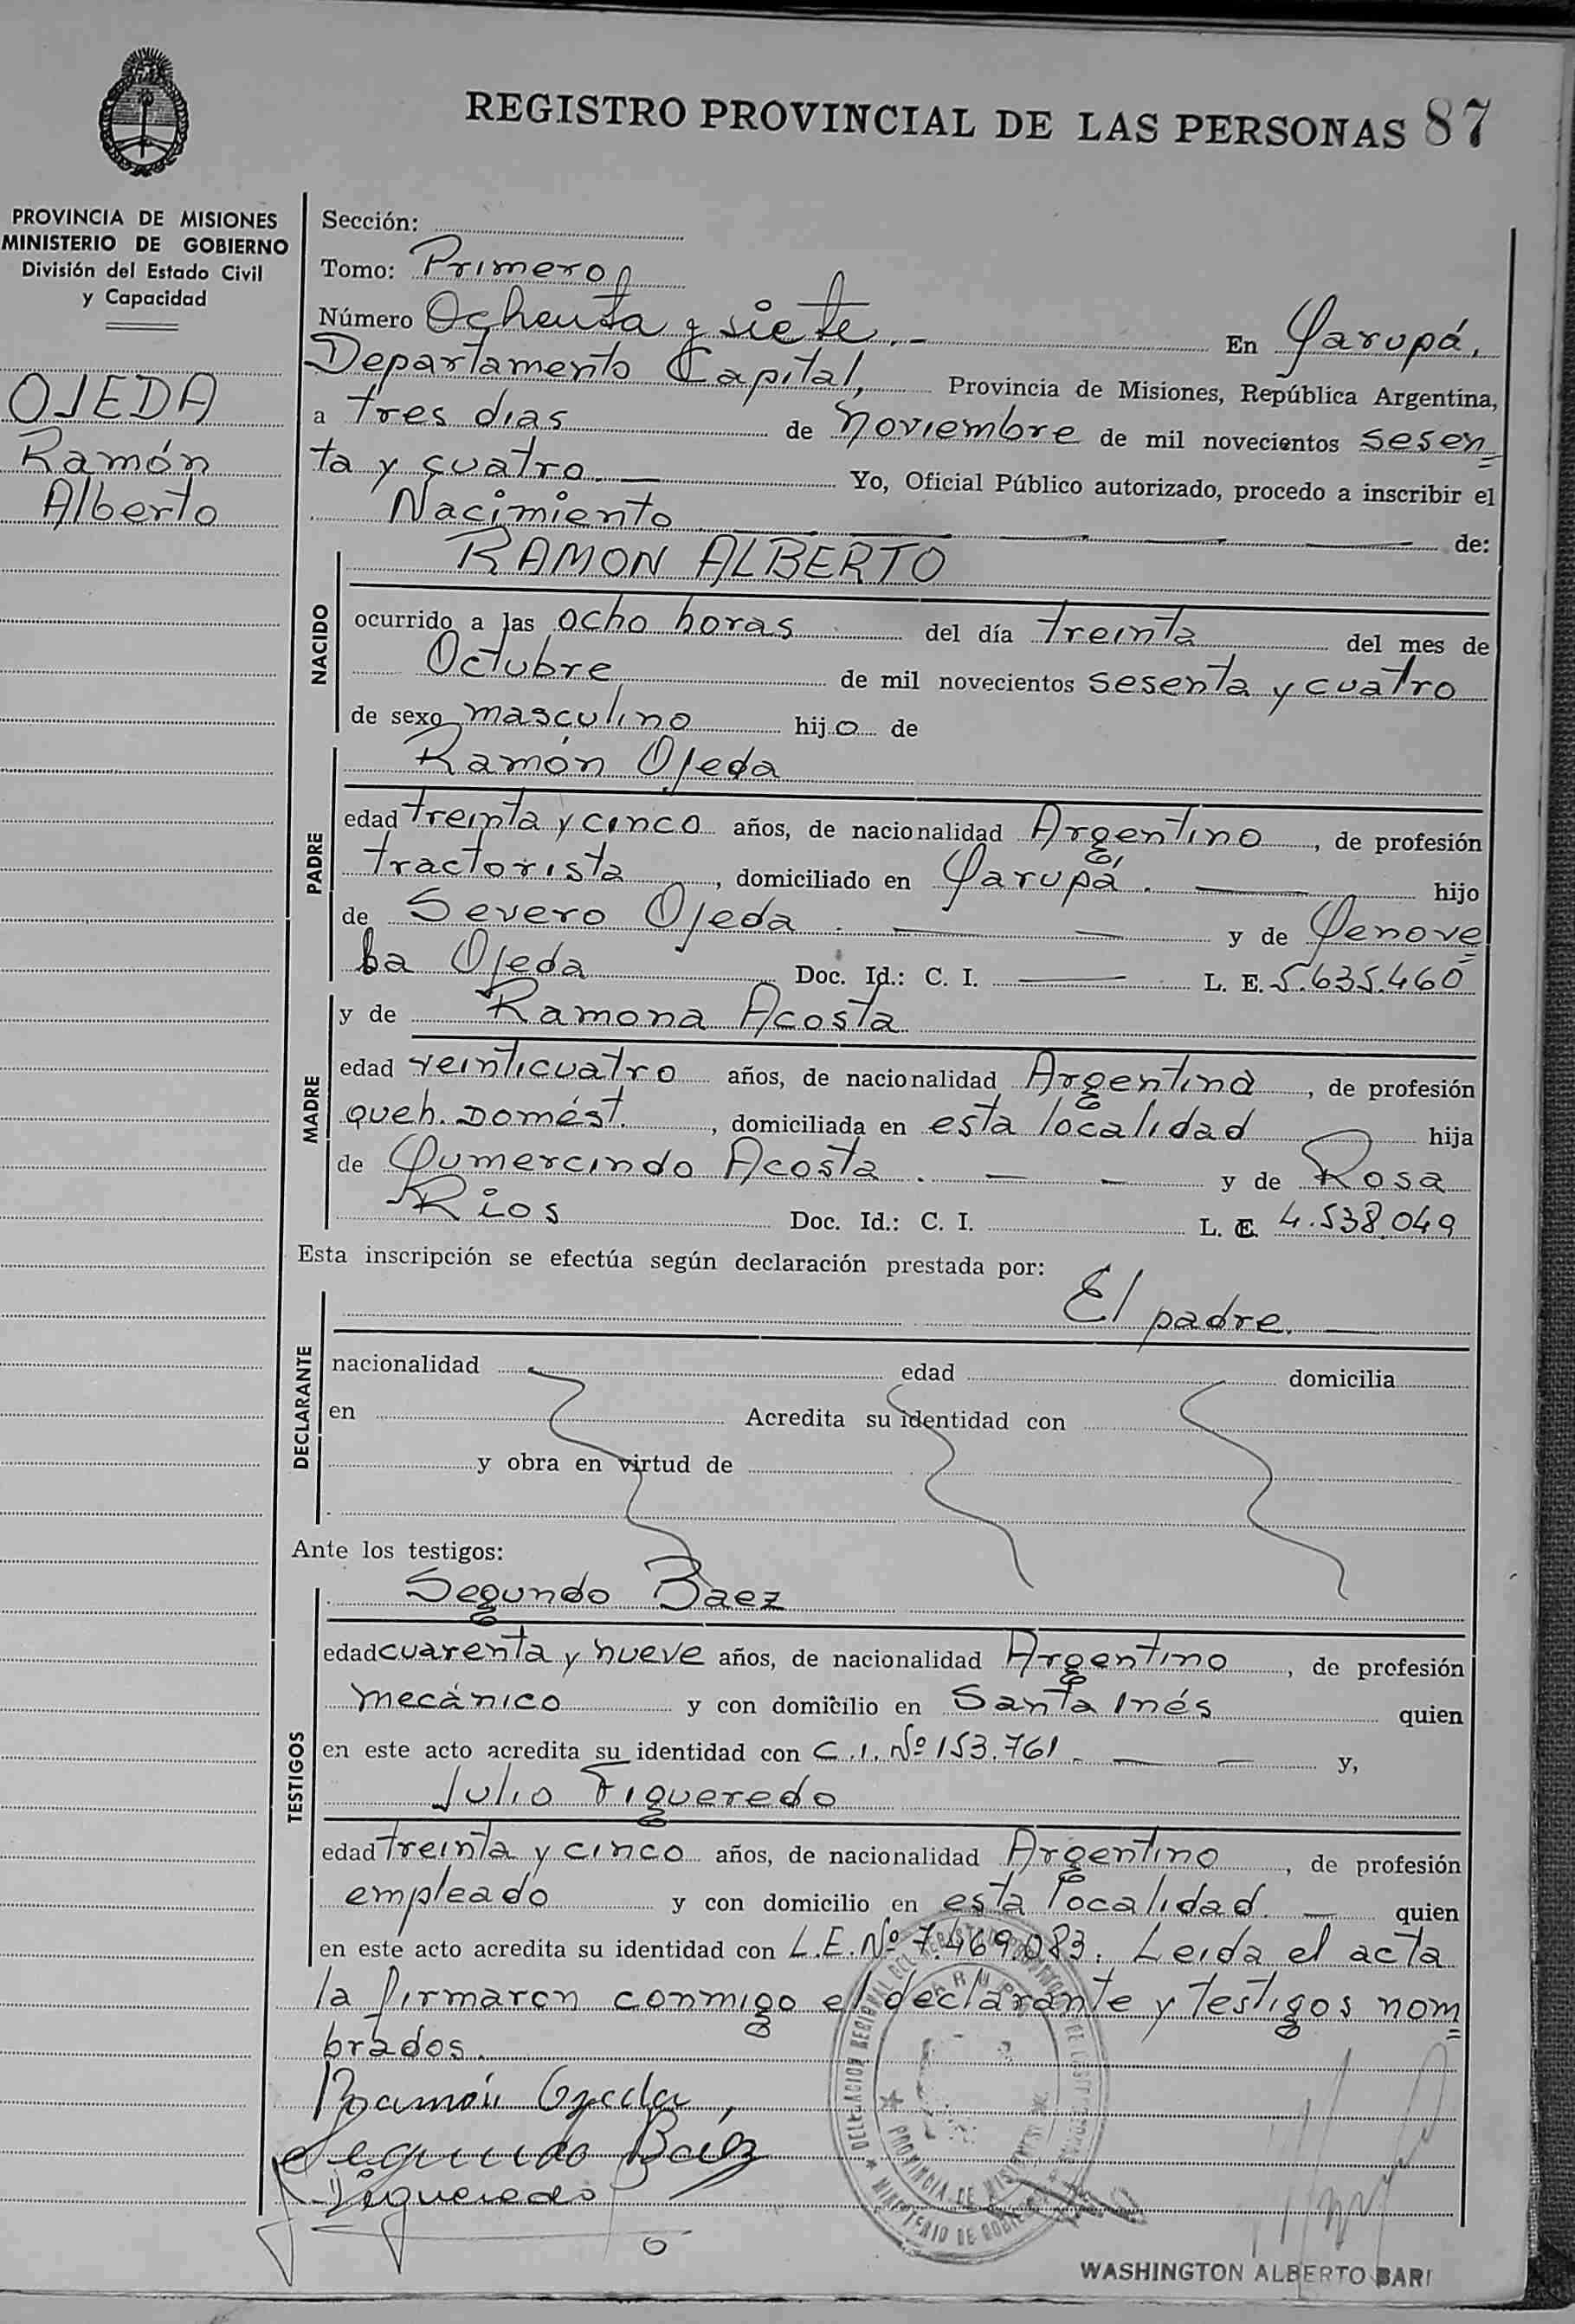 REGISTRO PROVINCIAL DE LAS PERSONAS 87
PROVINCIA DE MISIONES
MINISTERIO DE GOBIERNO
División del Estado Civil
y Capacidad
OJEDA
Ramón
Alberto
Sección:
Tomo: Primero
Número Ochenta y siete.- En Garupá,
Departamento Capital, Provincia de Misiones, República Argentina,
a tres dias de Noviembre de mil novecientos sesen
ta y cuatro. Yo, Oficial Público autorizado, procedo a inscribir el
Nacimiento de:
NACIDO
RAMON ALBERTO
ocurrido a las ocho horas del día treinta del mes de
Octubre de mil novecientos sesenta y cuatro
de sexo masculino hijo de
PADRE
Ramón Ojeda
edad treinta y cinco años, de nacionalidad Argentino, de profesión
tractorista, domiciliado en Garupá. hijo
de Severo Ojeda. y de Genove
ba Ojeda Doc. Id.: C. I. L. E. 5.635.460
MADRE
y de Ramona Acosta
edad veinticuatro años, de nacionalidad Argentina, de profesión
queh. Domést., domiciliada en esta localidad hija
de Gumercindo Acosta. y de Rosa
Rios Doc. Id.: C. I. L. C. 4.538.049
Esta inscripción se efectúa según declaración prestada por:
El padre.
DECLARANTE
nacionalidad edad domicilia
en Acredita su identidad con
y obra en virtud de
Ante los testigos:
TESTIGOS
Segundo Baez
edad cuarenta y nueve años, de nacionalidad Argentino, de profesión
mecánico y con domicilio en Santa Inés quien
en este acto acredita su identidad con C.I. Nº 153.761. y,
Julio Figueredo
edad treinta y cinco años, de nacionalidad Argentino, de profesión
empleado y con domicilio en esta localidad. quien
en este acto acredita su identidad con L.E. Nº 7.469.083. Leida el acta
la firmaron conmigo el declarante y testigos nom
brados.
Ramón Ojeda,
Segundo Baez
Figueredo
PROVINCIA DE MISIONES
MINISTERIO DE GOBIERNO
WASHINGTON ALBERTO BARI